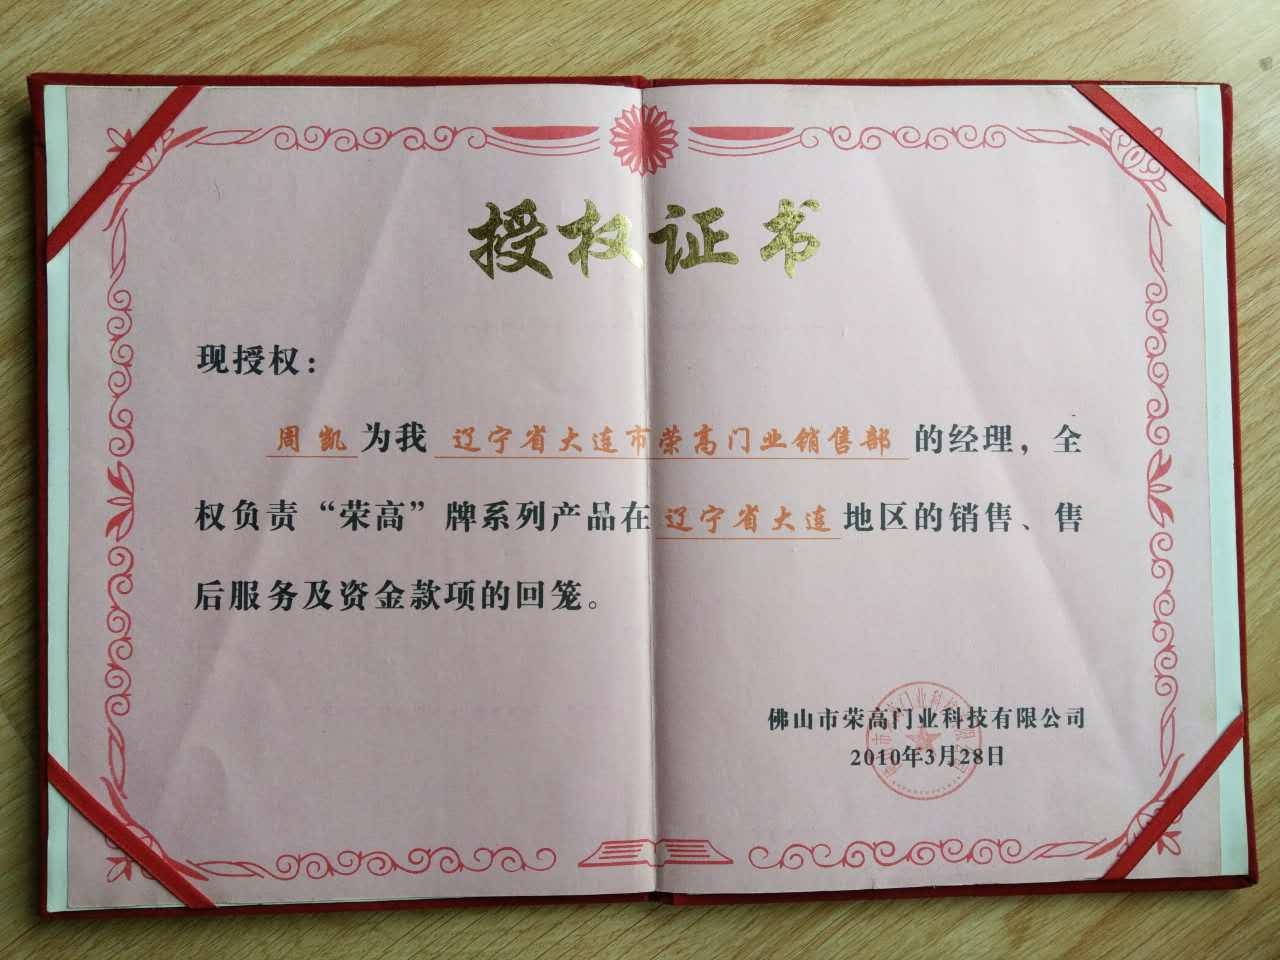 授权证书
现授权：
周凯为我 辽宁省大连市荣高门业销售部 的经理，全
权负责“荣高”牌系列产品在辽宁省大连地区的销售、售
后服务及资金款项的回笼。
佛山市荣高门业科技有限公司
2010年3月28日